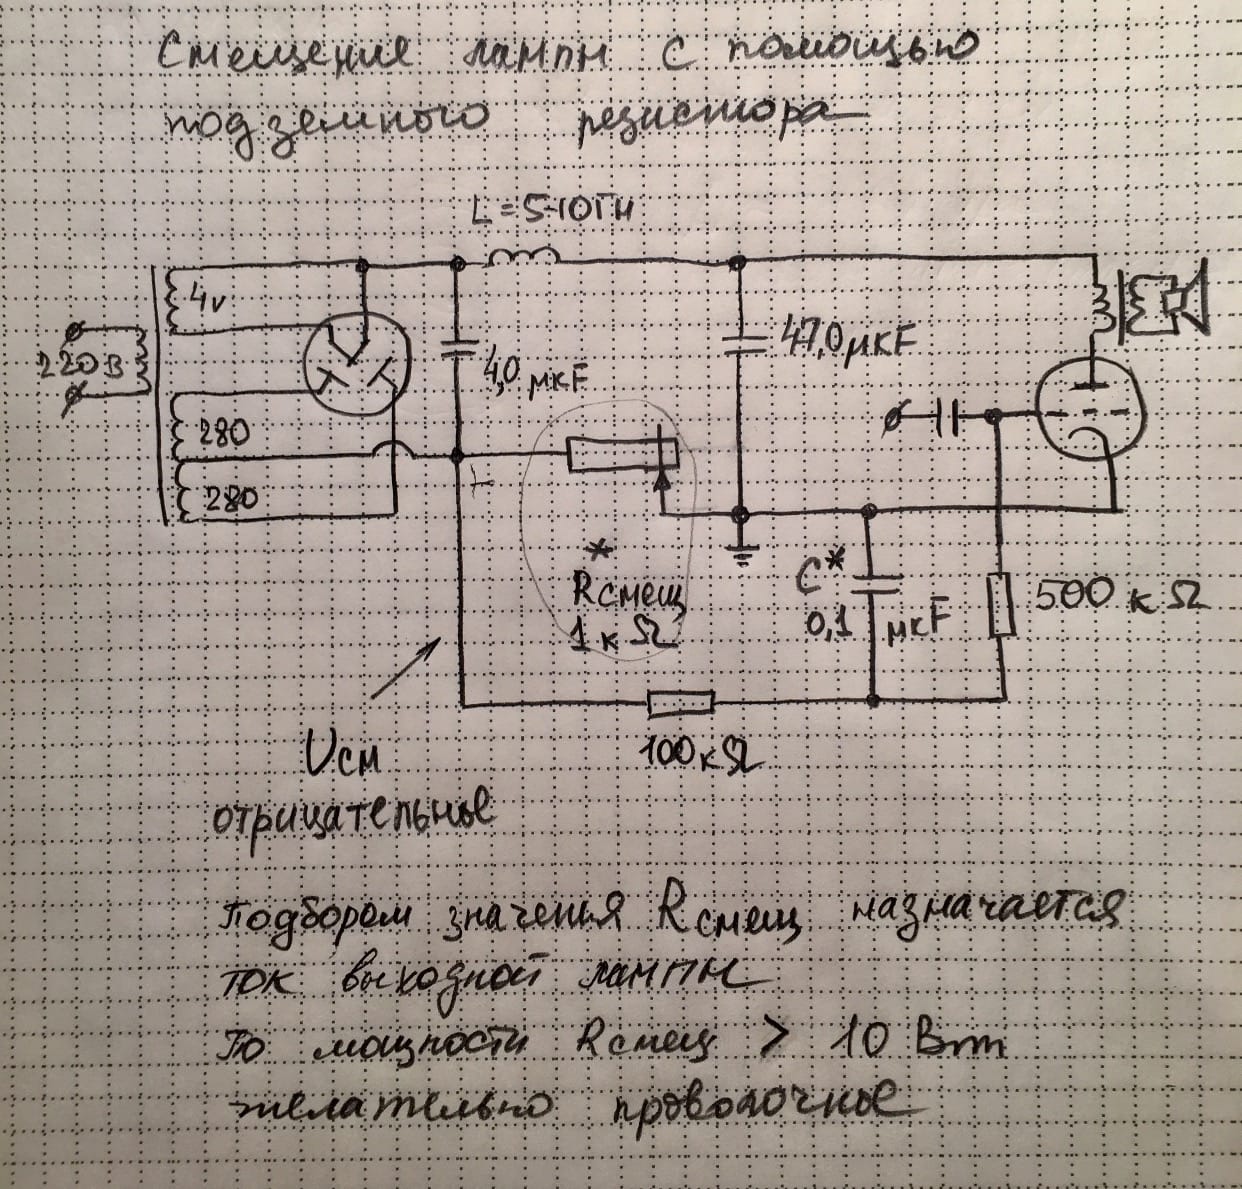 Смещение лампы с помощью
подземного резистора
L = 5-10Гн
4v
220В
47,0 мкF
4,0 мкF
280
280
*
Rсмещ
1 к Ω
C*
0,1 мкF
500 к Ω
100к Ω
Uсм
отрицательное
Подбором значенья Rсмещ назначается
ток выходной лампы
По мощности Rсмещ > 10 Вт
желательно проволочные